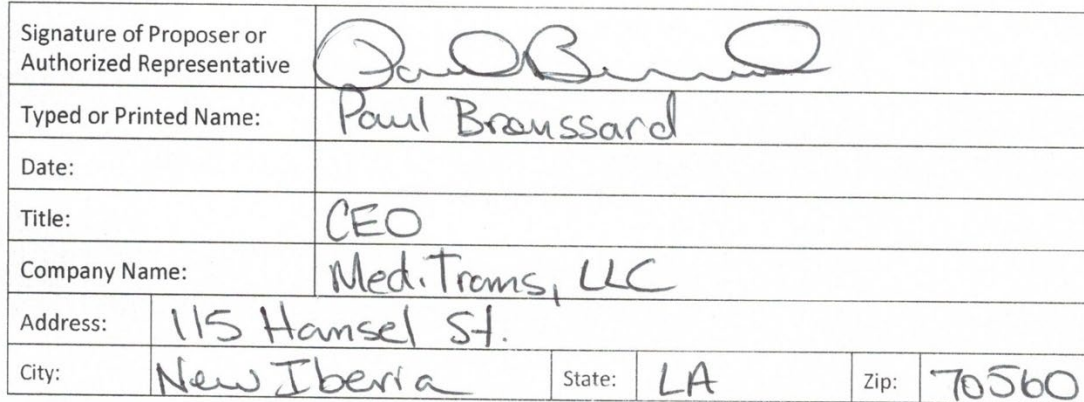 Signature of Proposer or
Authorized Representative
Typed or Printed Name: Paul Broussard
Date:
Title: CEO
Company Name: MediTrans, LLC
Address: 115 Hansel St.
City: New Iberia State: LA Zip: 70560